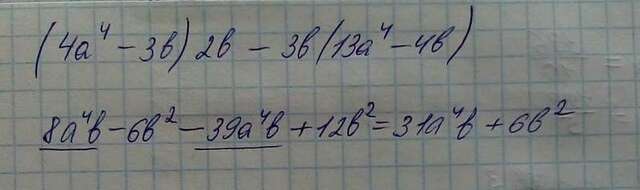 (4a⁴ – 3в) 2в – 3в (13a⁴ – 4в)
8a⁴в – 6в² – 39a⁴в + 12в² = 31a⁴в + 6в²